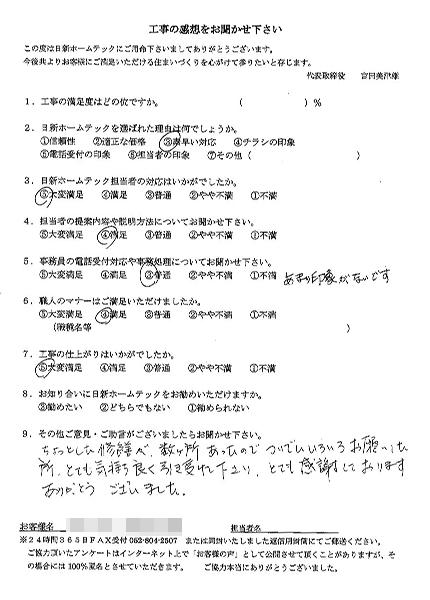 工事の感想をお聞かせ下さい
この度は日新ホームテックにご用命下さいましてありがとうございます。
今後共よりお客様にご満足いただける住まいづくりを心がけて参りたいと存じます。
代表取締役 宮田美津雄
1．工事の満足度はどの位ですか。 （ ）%
2．日新ホームテックを選ばれた理由は何でしょうか。
①信頼性 ②適正な価格 ③素早い対応 ④チラシの印象
⑤電話受付の印象 ⑥担当者の印象 ⑦その他（ ）
3．日新ホームテック担当者の対応はいかがでしたか。
⑤大変満足 ④満足 ③普通 ②やや不満 ①不満
4．担当者の提案内容や説明方法についてお聞かせ下さい。
⑤大変満足 ④満足 ③普通 ②やや不満 ①不満
5．事務員の電話受付対応や事務処理についてお聞かせ下さい。
⑤大変満足 ④満足 ③普通 ②やや不満 ①不満 あまり印象がないです
6．職人のマナーはご満足いただけましたか。
⑤大変満足 ④満足 ③普通 ②やや不満 ①不満
（職種名等 ）
7．工事の仕上がりはいかがでしたか。
⑤大変満足 ④満足 ③普通 ②やや不満 ①不満
8．お知り合いに日新ホームテックをお勧めいただけますか。
③勧めたい ②どちらでもない ①勧められない
9．その他ご意見・ご助言がございましたらお聞かせ下さい。
ちょっとした修繕が、数ヶ所あったのでついでにいろいろお願いした
所、とても気持ち良く引き受けて下さり、とても感謝しております
ありがとうございました。
お客様名 担当者名
※24時間365日FAX受付 052-804-2507 または同封いたしました返信用封筒にてご郵送ください。
ご協力頂いたアンケートはインターネット上で「お客様の声」として公開させて頂くことがありますが、そ
の場合には100%匿名とさせていただきます。 ご協力本当にありがとうございました。